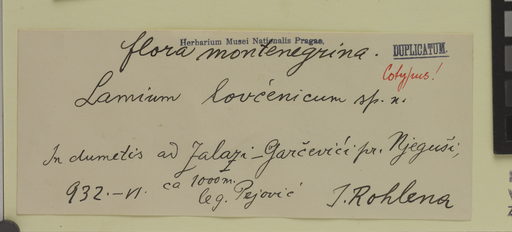 Herbarium Musei Nationalis Pragae.
flora montenegrina.
DUPLICATUM.
Cotypus!
Lamium lovćenicum sp. n.
In dumetis ad Jalazi-Garčevići pr. Njeguši,
ca 1000 m.
932.-VI. leg. Pejović J. Rohlena